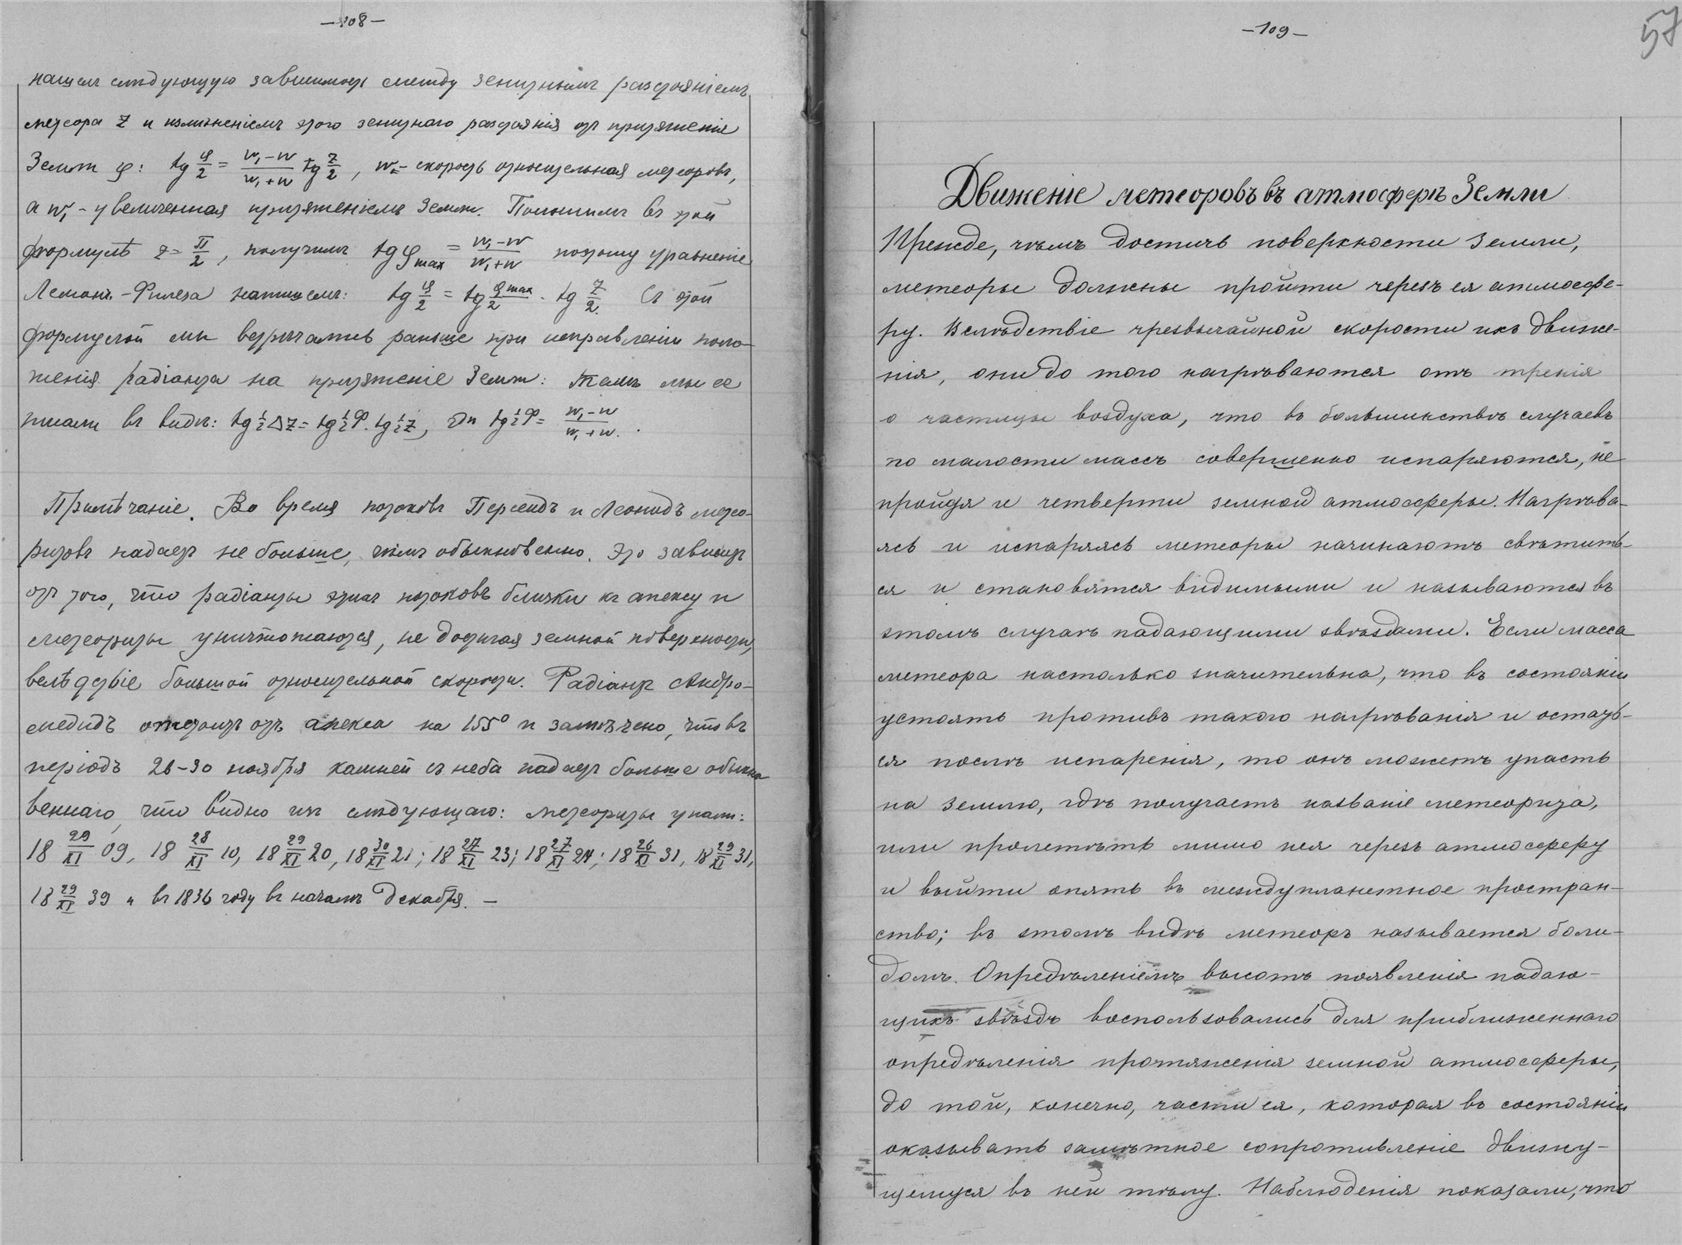 — 108 —
нашелъ слѣдующую зависимость между зенитнымъ разстояніемъ
метеора z и измѣненіемъ этого зенитнаго разстоянія отъ притяженія
Земли φ: tg φ/2 = (w₁-w)/(w₁+w) tg z/2, w - скорость относительная метеоровъ,
а w₁ - увеличенная притяженіемъ Земли. Положимъ въ этой
формулѣ z = π/2, получимъ tg φ max = (w₁-w)/(w₁+w) поэтому уравненіе
Леманъ-Филеса напишемъ: tg φ/2 = tg φmax/2 · tg z/2. Съ этой
формулой мы встрѣчались раньше при исправленіи поло-
женія радіанта на притяженіе Земли: тамъ мы ее
писали въ видѣ: tg ½ Δz = tg ½ φ · tg ½ z, гдѣ tg ½ φ = (w₁-w)/(w₁+w).
Примѣчаніе. Во время потоковъ Персеидъ и Леонидъ метео-
ритовъ падаетъ не больше, чѣмъ обыкновенно. Это зависитъ
отъ того, что радіанты этихъ потоковъ близки къ апексу и
метеориты уничтожаются, не достигая земной поверхности,
вслѣдствіе большой относительной скорости. Радіантъ Андро-
медидъ отстоитъ отъ апекса на 155° и замѣчено, что въ
періодъ 26-30 ноября камней съ неба падаетъ больше обыкно
веннаго, что видно изъ слѣдующаго: метеориты упали:
18 29/XI 09, 18 28/XI 10, 18 29/XI 20, 18 30/XI 21; 18 27/XI 23; 18 27/XI 24; 18 26/XI 31, 18 29/XI 31,
18 29/XI 39 и въ 1836 году въ началѣ Декабря. —
— 109 —
57
Движеніе метеоровъ въ атмосферѣ Земли
Прежде, чѣмъ достичь поверхности Земли,
метеоры должны пройти черезъ ея атмосфе-
ру. Вслѣдствіе чрезвычайной скорости ихъ движе-
нія, они до того нагрѣваются отъ тренія
о частицы воздуха, что въ большинствѣ случаевъ
по малости массъ совершенно испаряются, не
пройдя и четверти земной атмосферы. Нагрѣва-
ясь и испаряясь метеоры начинаютъ свѣтить-
ся и становятся видимыми и называются въ
этомъ случаѣ падающими звѣздами. Если масса
метеора настолько значительна, что въ состояніи
устоять противъ такого нагрѣванія и остать-
ся послѣ испаренія, то онъ можетъ упасть
на землю, гдѣ получаетъ названіе метеорита,
или пролетѣть мимо нея черезъ атмосферу
и выйти опять въ междупланетное простран-
ство; въ этомъ видѣ метеоръ называется боли-
домъ. Опредѣленіемъ высотъ появленія падаю-
щихъ звѣздъ воспользовались для приближеннаго
опредѣленія протяженія земной атмосферы,
до той, конечно, части ея, которая въ состояніи
оказывать замѣтное сопротивленіе движу-
щемуся въ ней тѣлу. Наблюденія показали, что